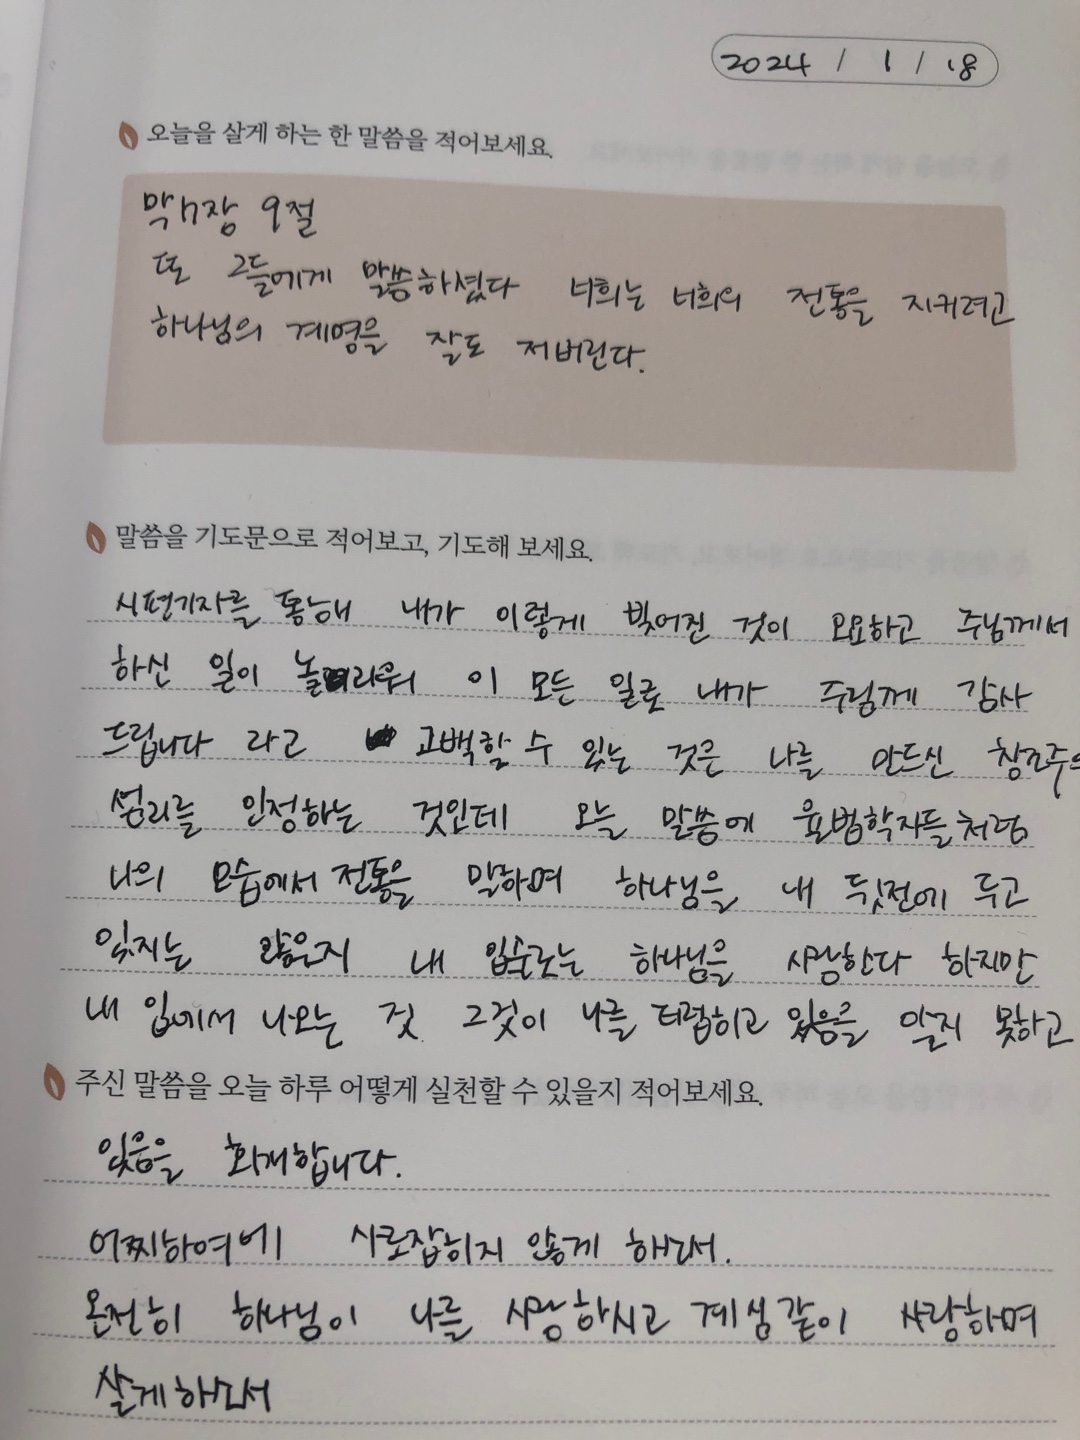 2024 / 1 / 18
오늘을 살게 하는 한 말씀을 적어보세요.
막 7장 9절
또 그들에게 말씀하셨다 너희는 너희의 전통을 지키려고
하나님의 계명을 잘도 저버린다.
말씀을 기도문으로 적어보고, 기도해 보세요.
시편기자를 통해 내가 이렇게 빚어진 것이 오묘하고 주님께서
하신 일이 놀라워 이 모든 일로 내가 주님께 감사
드립니다 라고 고백할 수 있는 것은 나를 만드신 창조주의
섭리를 인정하는 것인데 오늘 말씀에 율법학자들처럼
나의 모습에서 전통을 말하며 하나님을 내 뒷전에 두고
있지는 않은지 내 입술로는 하나님을 사랑한다 하지만
내 입에서 나오는 것 그것이 나를 더럽히고 있음을 알지 못하고
주신 말씀을 오늘 하루 어떻게 실천할 수 있을지 적어보세요.
있음을 회개합니다.
어찌하여에 사로잡히지 않게 하소서.
온전히 하나님이 나를 사랑하시고 계심같이 사랑하며
살게하소서